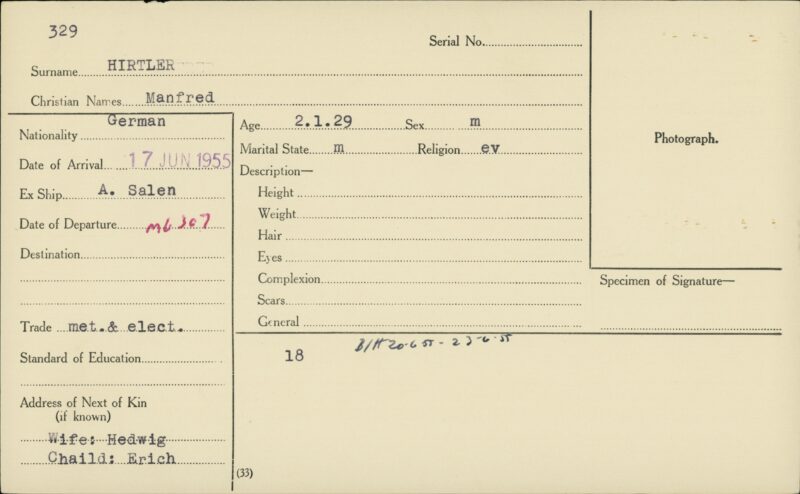 329
Serial No.
Surname HIRTLER
Christian Names Manfred
German
Nationality
Date of Arrival 17 JUN 1955
Ex Ship A. Salen
Date of Departure M6 307
Destination
Trade met.& elect.
Standard of Education
Address of Next of Kin
(if known)
Wife: Hedwig
Chaild: Erich
Age 2.1.29 Sex m
Marital State m Religion ev
Description—
Height
Weight
Hair
Eyes
Complexion
Scars
General
18 B/H 20-6-55 - 23-6-55
(33)
Photograph.
Specimen of Signature—